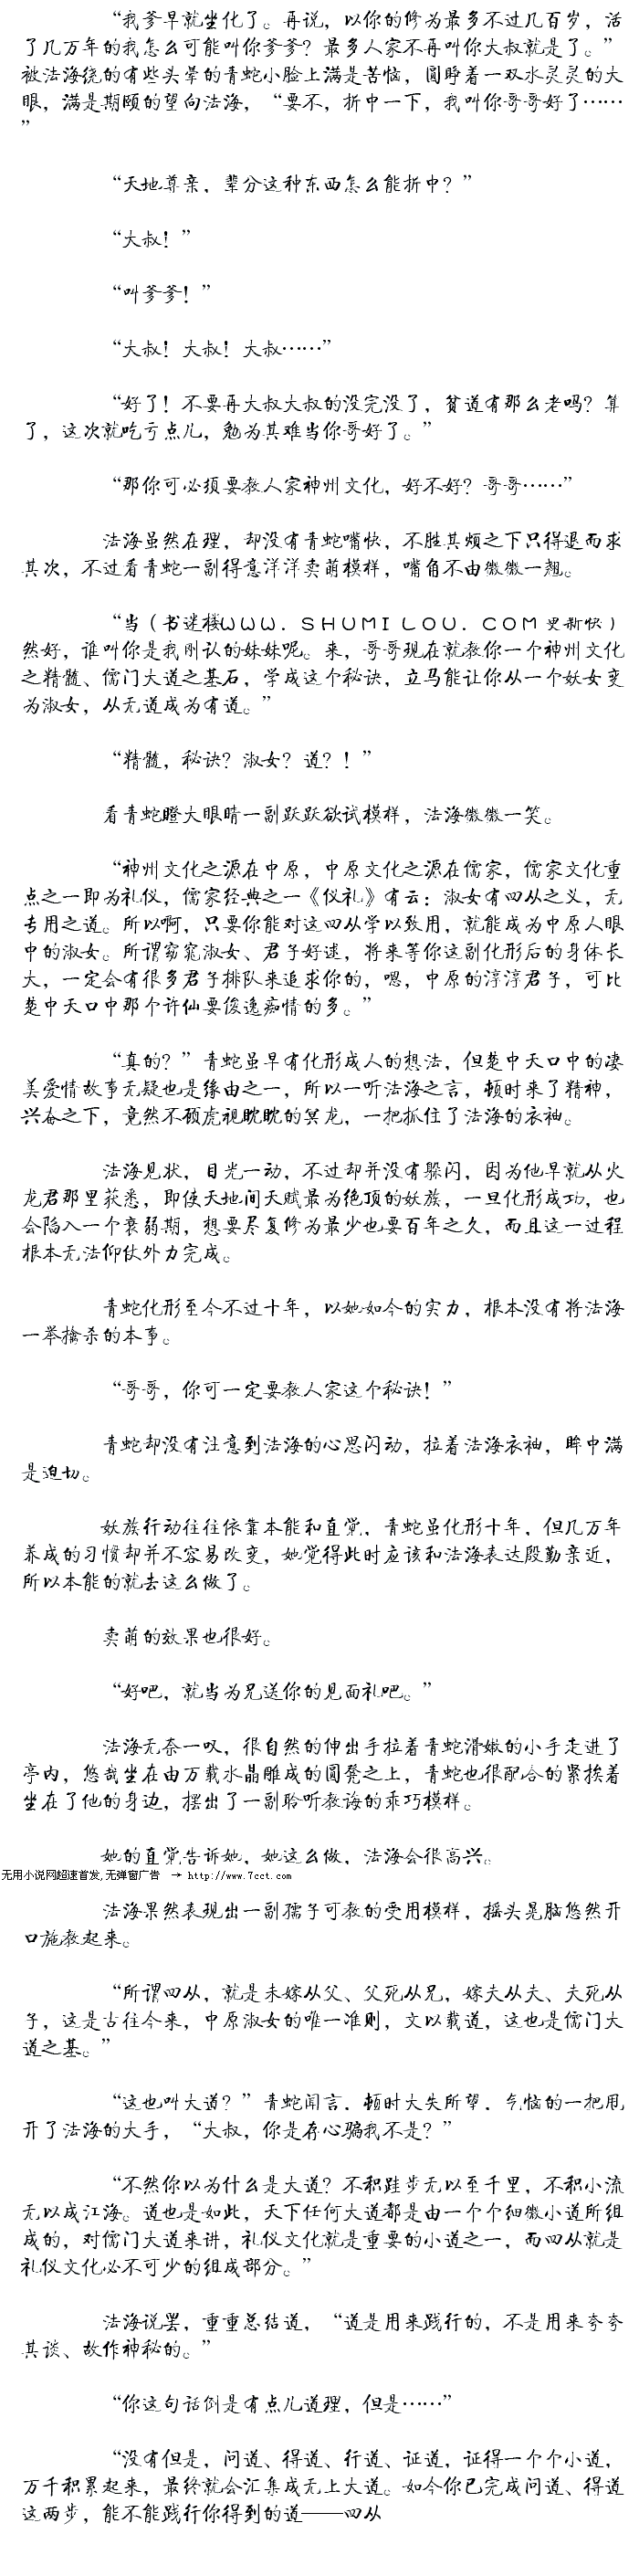 “我爹早就坐化了。再说，以你的修为最多不过几百岁，活
了几万年的我怎么可能叫你爹爹？最多人家不再叫你大叔就是了。”
被法海绕的有些头晕的青蛇小脸上满是苦恼，圆睁着一双水灵灵的大
眼，满是期颐的望向法海，“要不，折中一下，我叫你哥哥好了……
”
“天地尊亲，辈分这种东西怎么能折中？”
“大叔！”
“叫爹爹！”
“大叔！大叔！大叔……”
“好了！不要再大叔大叔的没完没了，贫道有那么老吗？算
了，这次就吃亏点儿，勉为其难当你哥好了。”
“那你可必须要教人家神州文化，好不好？哥哥……”
法海虽然在理，却没有青蛇嘴快，不胜其烦之下只得退而求
其次，不过看青蛇一副得意洋洋卖萌模样，嘴角不由微微一翘。
“当（书迷楼ＷＷＷ．ＳＨＵＭＩＬＯＵ．ＣＯＭ更新快）
然好，谁叫你是我刚认的妹妹呢。来，哥哥现在就教你一个神州文化
之精髓、儒门大道之基石，学成这个秘诀，立马能让你从一个妖女变
为淑女，从无道成为有道。”
“精髓，秘诀？淑女？道？！”
看青蛇瞪大眼睛一副跃跃欲试模样，法海微微一笑。
“神州文化之源在中原，中原文化之源在儒家，儒家文化重
点之一即为礼仪，儒家经典之一《仪礼》有云：淑女有四从之义，无
专用之道。所以啊，只要你能对这四从学以致用，就能成为中原人眼
中的淑女。所谓窈窕淑女、君子好逑，将来等你这副化形后的身体长
大，一定会有很多君子排队来追求你的，嗯，中原的淳淳君子，可比
楚中天口中那个许仙要俊逸痴情的多。”
“真的？”青蛇虽早有化形成人的想法，但楚中天口中的凄
美爱情故事无疑也是缘由之一，所以一听法海之言，顿时来了精神，
兴奋之下，竟然不顾虎视眈眈的冥龙，一把抓住了法海的衣袖。
法海见状，目光一动，不过却并没有躲闪，因为他早就从火
龙君那里获悉，即使天地间天赋最为绝顶的妖族，一旦化形成功，也
会陷入一个衰弱期，想要尽复修为最少也要百年之久，而且这一过程
根本无法仰仗外力完成。
青蛇化形至今不过十年，以她如今的实力，根本没有将法海
一举擒杀的本事。
“哥哥，你可一定要教人家这个秘诀！”
青蛇却没有注意到法海的心思闪动，拉着法海衣袖，眸中满
是迫切。
妖族行动往往依靠本能和直觉，青蛇虽化形十年，但几万年
养成的习惯却并不容易改变，她觉得此时应该和法海表达殷勤亲近，
所以本能的就去这么做了。
卖萌的效果也很好。
“好吧，就当为兄送你的见面礼吧。”
法海无奈一叹，很自然的伸出手拉着青蛇滑嫩的小手走进了
亭内，悠哉坐在由万载水晶雕成的圆凳之上，青蛇也很配合的紧挨着
坐在了他的身边，摆出了一副聆听教诲的乖巧模样。
她的直觉告诉她，她这么做，法海会很高兴。
无用小说网超速首发,无弹窗广告 →http://www.7cct.com
法海果然表现出一副孺子可教的受用模样，摇头晃脑悠然开
口施教起来。
“所谓四从，就是未嫁从父、父死从兄，嫁夫从夫、夫死从
子，这是古往今来，中原淑女的唯一准则，文以载道，这也是儒门大
道之基。”
“这也叫大道？”青蛇闻言，顿时大失所望，气恼的一把甩
开了法海的大手，“大叔，你是存心骗我不是？”
“不然你以为什么是大道？不积跬步无以至千里，不积小流
无以成江海。道也是如此，天下任何大道都是由一个个细微小道所组
成的，对儒门大道来讲，礼仪文化就是重要的小道之一，而四从就是
礼仪文化必不可少的组成部分。”
法海说罢，重重总结道，“道是用来践行的，不是用来夸夸
其谈、故作神秘的。”
“你这句话倒是有点儿道理，但是……”
“没有但是，问道、得道、行道、证道，证得一个个小道，
万千积累起来，最终就会汇集成无上大道。如今你已完成问道、得道
这两步，能不能践行你得到的道——四从